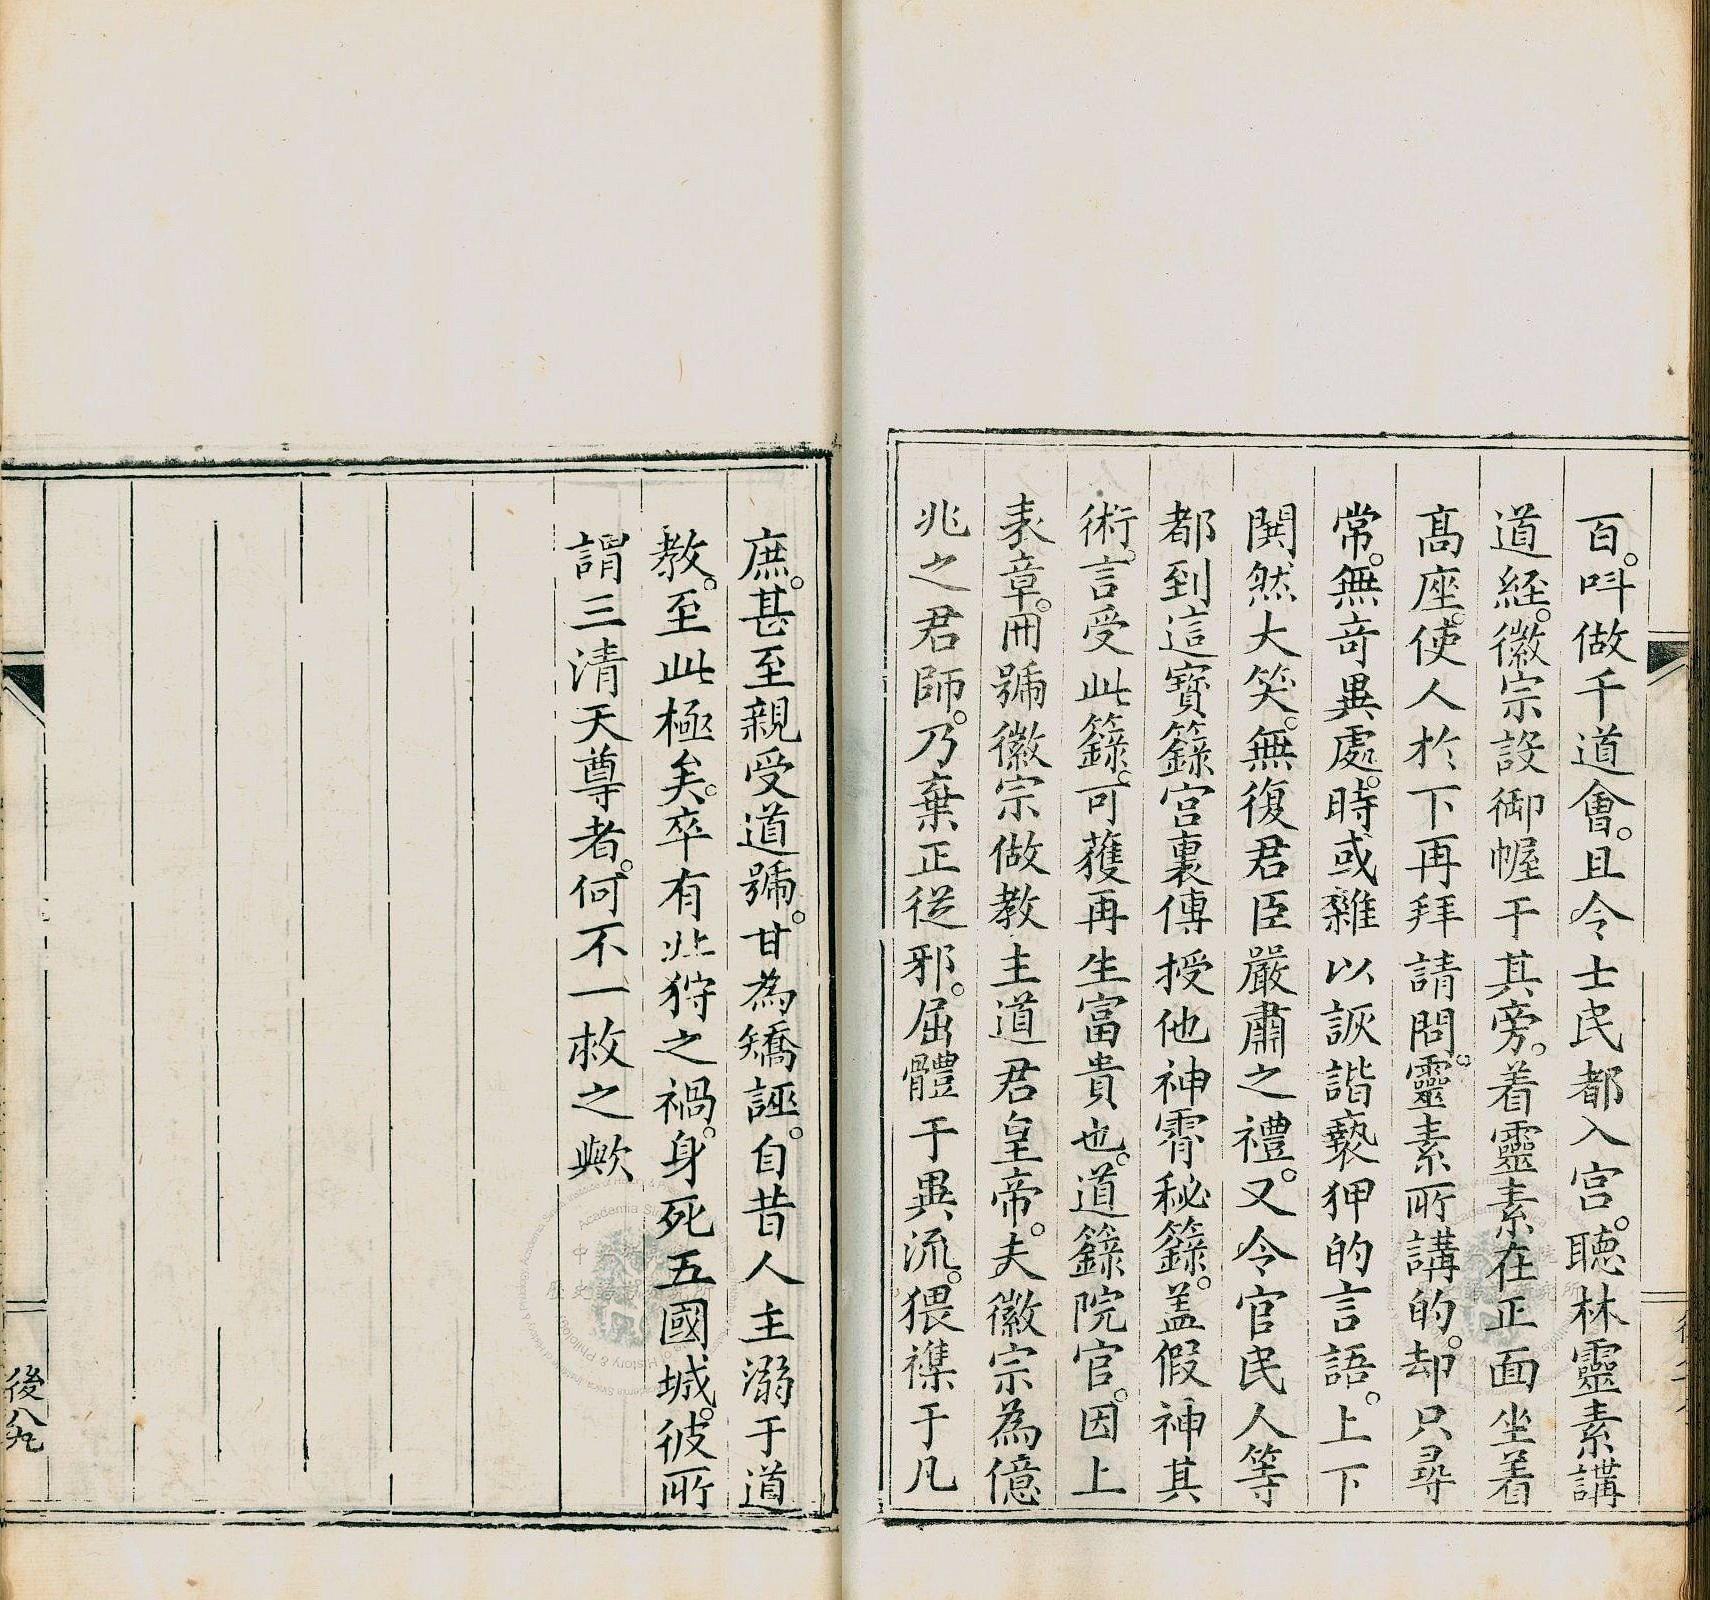 百。呌做千道會。且令士民都入宫。聽林靈素講
道經。徽宗設御幄于其旁。着靈素在正面坐着
髙座。使人於下再拜請問。靈素所講的。却只尋
常。無竒異處。時或雜以詼諧褻狎的言語。上下
閧然大笑。無復君臣嚴肅之禮。又令官民人等
都到這寳籙宫裏傳授他神霄秘籙。盖假神其
術。言受此籙。可獲再生富貴也。道籙院官。因上
表章。冊號徽宗做教主道君皇帝。夫徽宗為億
兆之君師。乃棄正從邪。屈體于異流。猥襍于凡
庶。甚至親受道號。甘為矯誣。自昔人主溺于道
教。至此極矣。卒有北狩之禍。身死五國城。彼所
謂三清天尊者。何不一救之歟
後八九